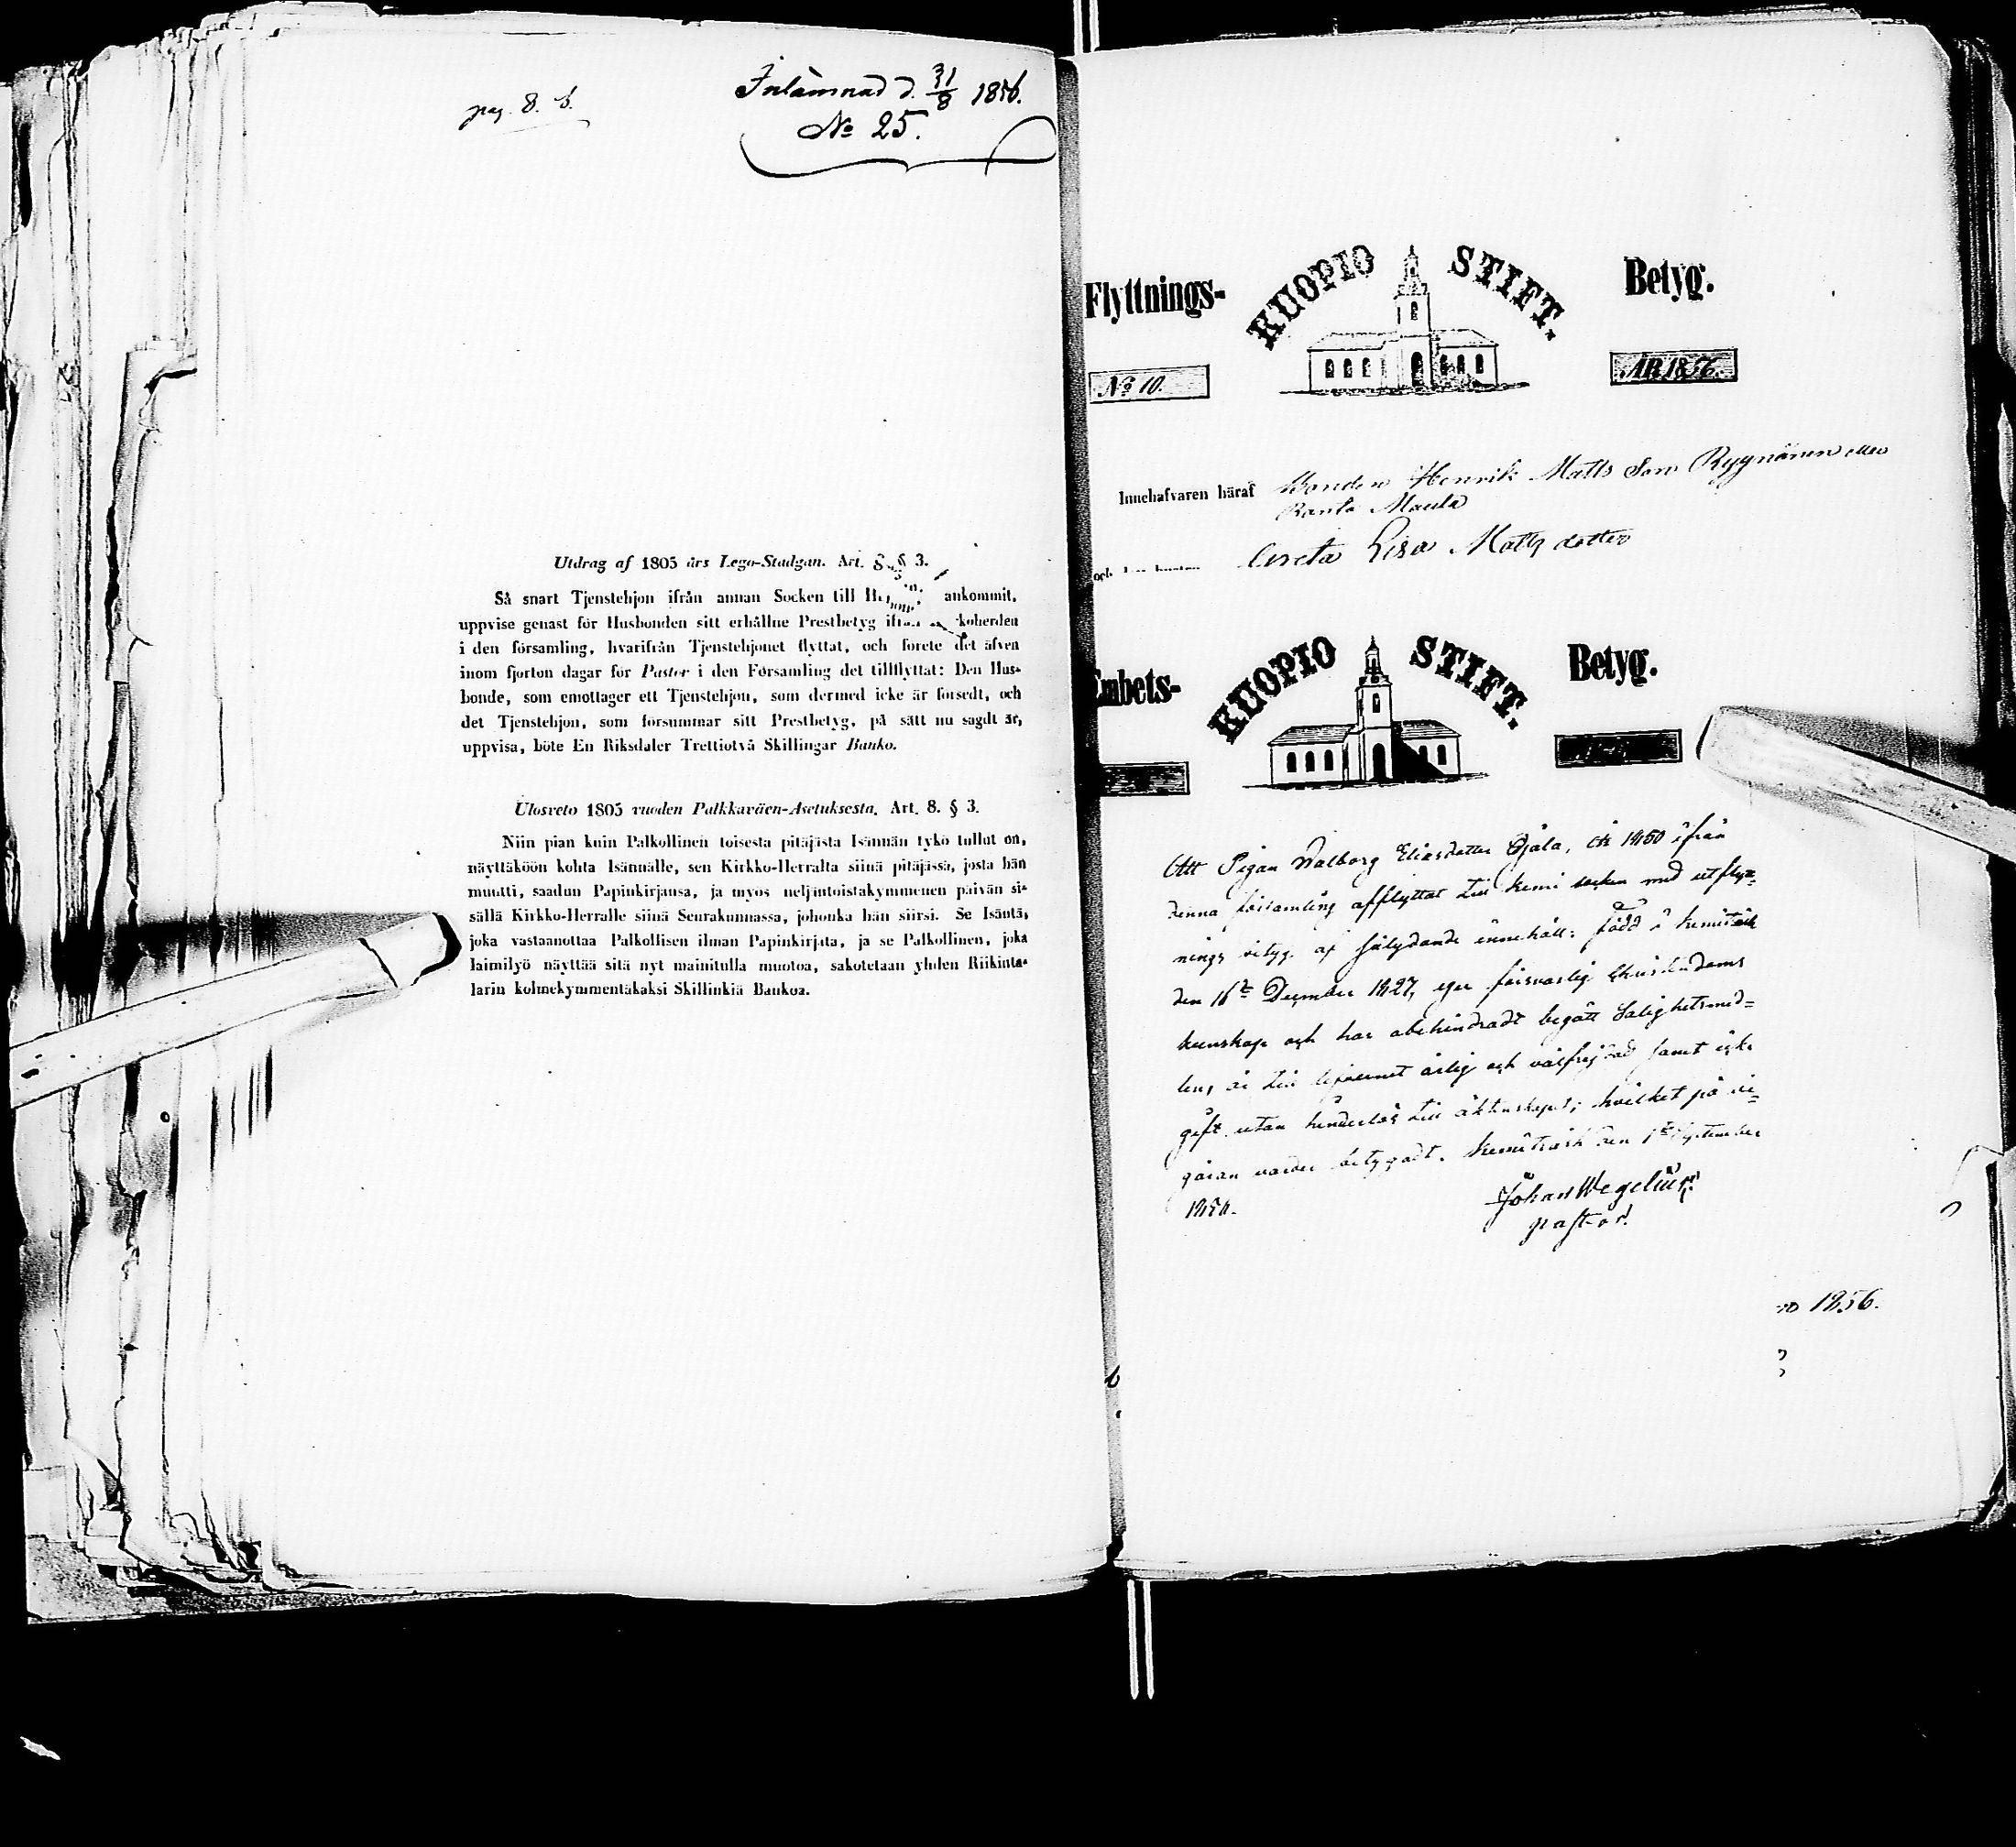 pag. 8. b.
Inlämnad d. 31/8 1856.
No 25.
Utdrag af 1805 års Lego-Stadgan. Art. 8. § 3.
Så snart Tjenstehjon ifrån annan Socken till ankommit,
uppvise genast för Husbonden sitt erhållne Prestbetyg ifrån koherden
i den församling, hvarifrån Tjenstehjonet flyttat, och forete det äfven
inom fjorton dagar för Pastor i den Församling det tillflyttat: Den Hus-
bonde, som emottager ett Tjenstehjon, som dermed icke är försedt, och
det Tjenstehjon, som försummar sitt Prestbetyg, på sätt nu sagdt är,
uppvisa, böte En Riksdaler Trettiotvå Skillingar Banko.
Ulosveto 1805 vuoden Palkkaväen-Asetuksesta. Art. 8. § 3.
Niin pian kuin Palkollinen toisesta pitäjästä Isännän tykö tullut on,
näyttäköön kohta Isännälle, sen Kirkko-Herralta siinä pitäjässä, josta hän
muutti, saadun Papinkirjansa, ja myös neljäntoistakymmenen päivän si-
sällä Kirkko-Herralle siinä Seurakunnassa, johonka hän siirsi. Se Isäntä,
joka vastaanottaa Palkollisen ilman Papinkirjata, ja se Palkollinen, joka
laimilyö näyttää sitä nyt mainitulla muotoa, sakotetaan yhden Riikinta-
larin kolmekymmentäkaksi Skillinkiä Bankoa.
Flyttnings- KUOPIO STIFT. Betyg.
No 10. ÅR 1856.
Innehafvaren häraf Bonden Henrik Matts Son Ryynänen eller
Ranta Maula
och hustru Greta Lisa Matts dotter
Embets- KUOPIO STIFT. Betyg.
Att Pigan Walborg Eliasdotter Ojala, år 1850 ifrån
denna församling afflyttat till Kemi socken med utflytt-
nings betyg af följdande innehåll: född i Kemiträsk
den 16de December 1827, eger försvarlig Christendoms
kunskap och har obehindradt begått Salighetsmed-
len, är till lefvernet ärlig och välfrejdad samt icke
gift utan hinderlös till äktenskapet; hvilket på be-
gäran varder betygadt. Kemiträsk den 1ste September
185
Johan Wegelius.
pastor.
1856.